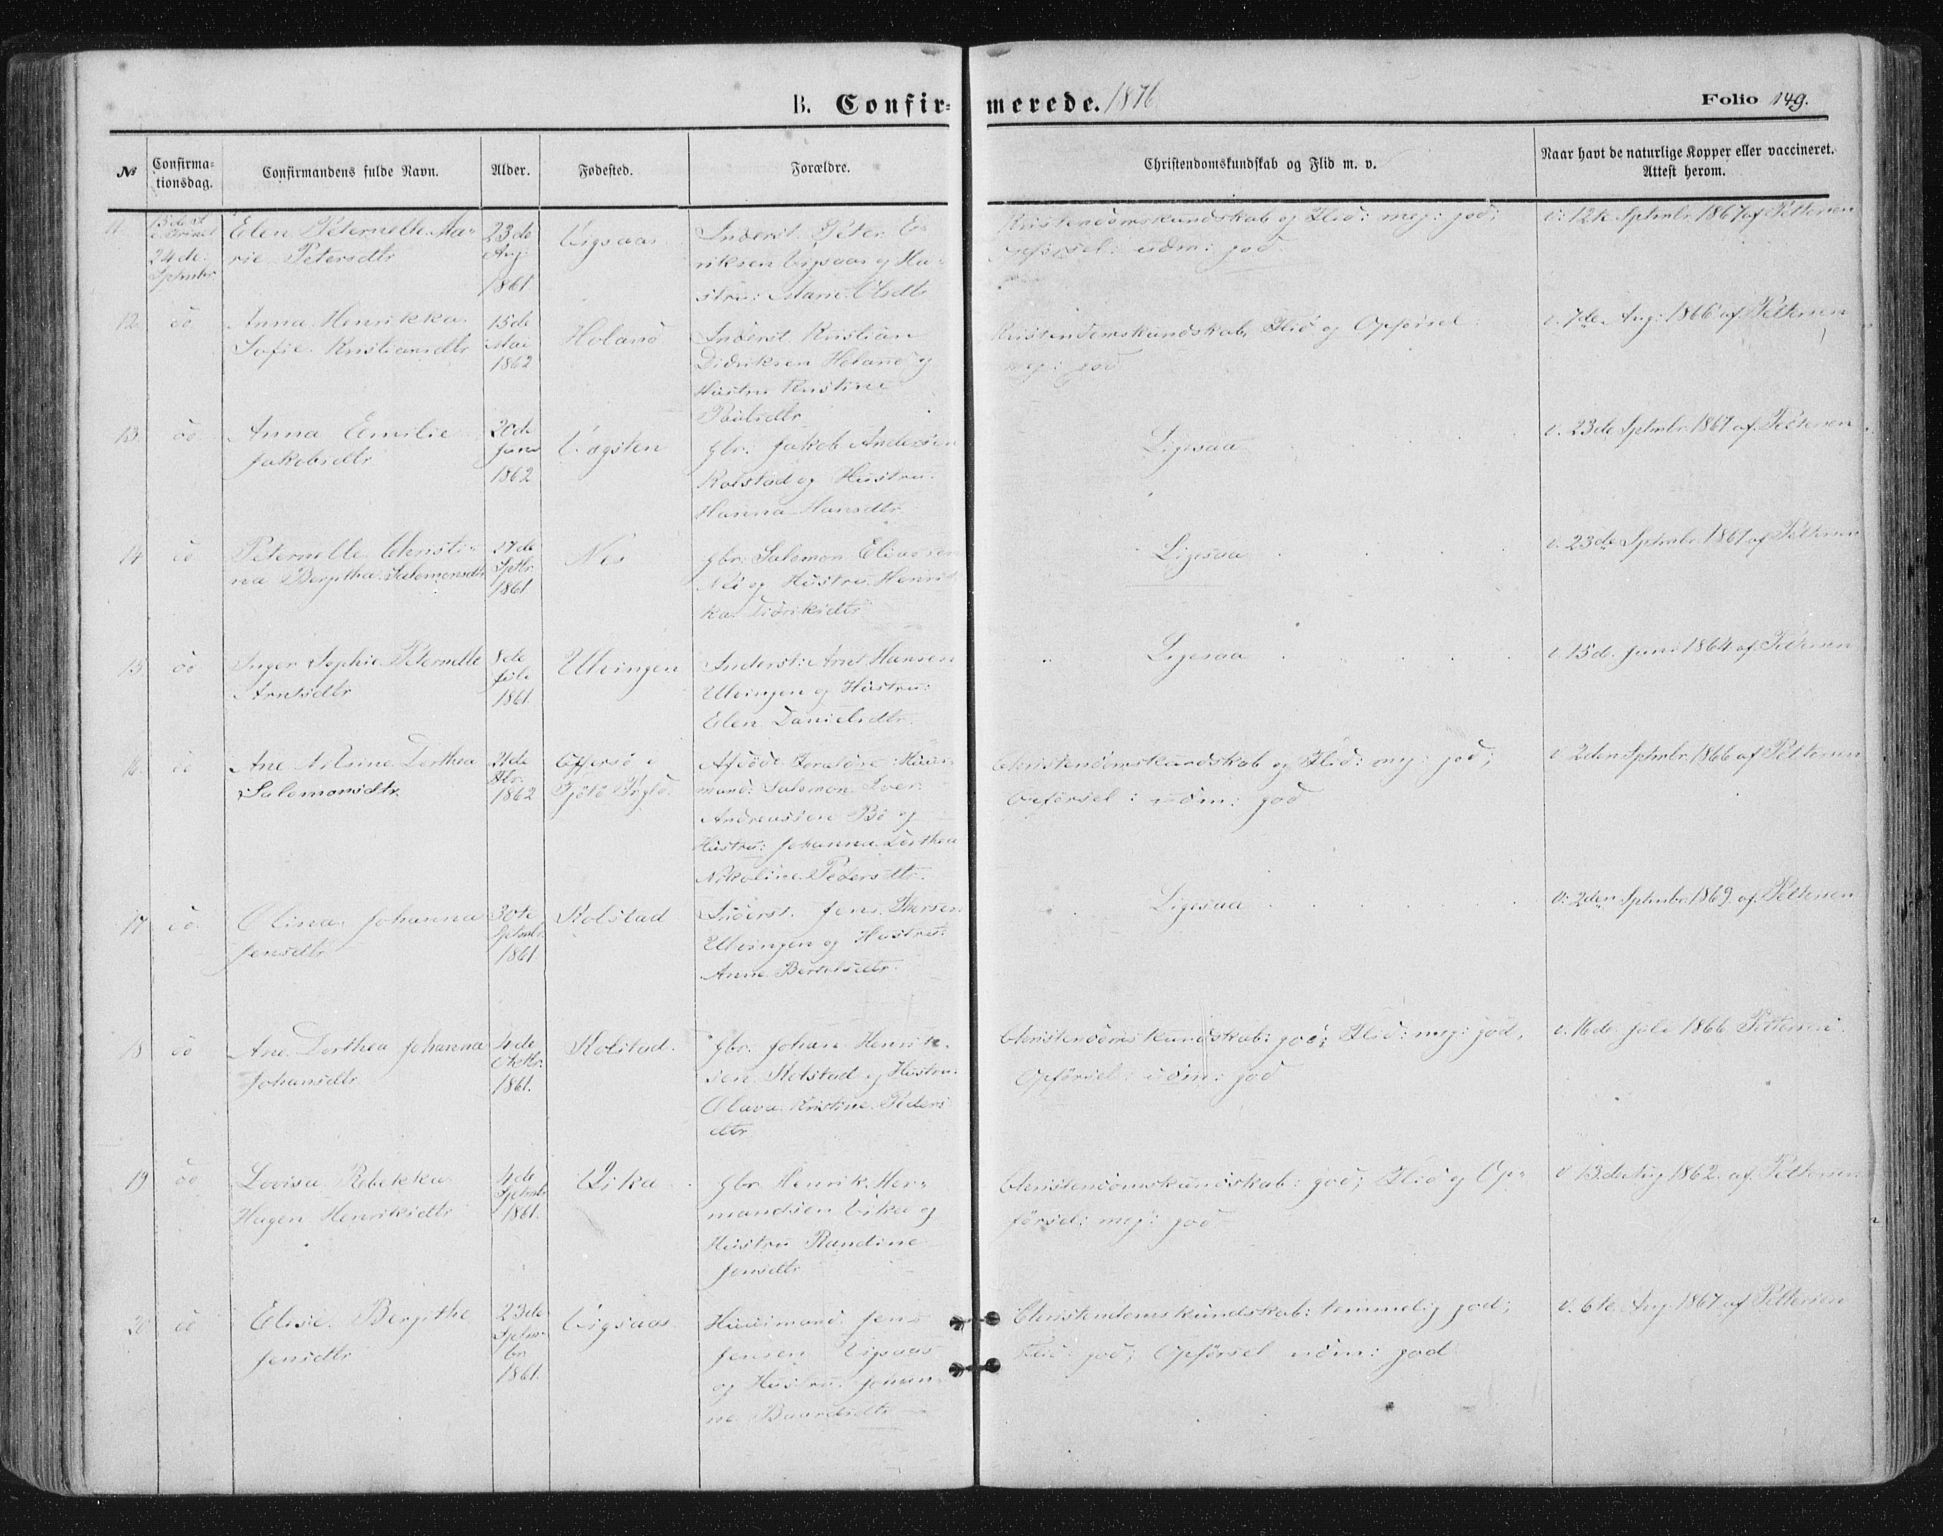 B. Confir= merede. 1876
Folio 149.
№
Confirma-
tionsdag.
Confirmandens fulde Navn.
Alder.
Fødested.
Forældre.
Christendomskundskab og Flid m. v.
Naar havt de naturlige Kopper eller vaccineret.
Attest herom.
11. 15de
24de
Sptmbr
Elen Peternelle Ma-
rie Petersdtr
23de
Aug:
1861
Vigsaas
Inderst Peter E-
riksen Vigsaas og Hu-
stru: Marie Olsdtr
Kristendomskundskab og Flid: meg: god;
Opførsel: udm: god
v: 12te Sptmbr 1867 af Pettersen
12. do
Anna Henrikka
Sofie Kristiansdtr
15de
Mai
1862
Holand
Inderst Kristian
Didriksen Holand og
Hustru Kristine
Poulsdtr
Kristendomskundskab, Flid og Opførsel:
meg: god
v. 7de Aug: 1866 af Pettersen
13. do
Anna Emilie
Jakobsdtr
20de
1862
Vagsten
Gbr. Jakob Andersen
Rolstad og Hustru
Hanna Hansdtr
Ligesaa
v. 23de Sptmbr 1867 af Pettersen
14 do
Peternelle Christi-
na Bergitha Salomonsdtr
17de
Sptbr.
1861
Nes
Gbr. Salomon Eliassen
Nes og Hustru Henrik-
ka Didriksdtr
Ligesaa
v. 23de Sptmbr 1867 af Pettersen
15 do
Inger Sophie Peternelle
Arntsdtr
8de
Juli
1861
Ulvingen
Inderst: Arnt Hansen
Ulvingen og Hustru:
Elen Danielsdtr.
Ligesaa
v. 15de Juni 1864 af Pettersen
16. do
Ane Dorthea
Salomonsdtr.
1862
Offersø i
Tjøtø
Afdøde Forældre: Huus-
mand: Salomon Iver
Andreassen Bø og
Hustru: Johanna Dorthea
Nikoline Pedersdtr.
Christendomskundskab og Flid: meg: god;
Opførsel: udm: god
v. 2den Sptmbr. 1866 af Pettersen
17 do.
Olina Johanna
Jensdtr
30te
Sptmbr
1861.
Rolstad
Inderst. Jens Iversen
Ulvingen og Hustru:
Anne Berntsdtr.
Ligesaa
v: 2den Sptmbr. 1869. af Pettersen
18 do
Ane Dorthea Johanna
Johansdtr
4de
Oktbr.
1861.
Rolstad.
Gbr. Johan Henrik-
sen Rolstad og Hustru:
Olava Kristine Peders
dtr
Christendomskundskab: god; Flid: meg: god,
Opførsel: udm: god
v. 16de Juli 1866 Pettersen
19 do
Lovisa Rebekka
Hagen Henriksdtr
4de
Sptmbr
1861.
Vika
Gbr. Henrik Her-
mandsen Vika og
Hustru Randine
Jensdtr
Christendomskundskab: god; Flid og Op-
førsel: meg: god
v 13de Aug 1862. af Pettersen
20 do
Elise Bergithe
Jensdtr
23de
Sptm-
br
1861.
Vigsaas
Huusmand: Jens
Jensen Vigsaas
og Hustru: Johan-
ne Baardsdtr
Christendomskundskab: temmelig god;
Flid: god; Opførsel udm: god
v. 6te Aug. 1867 af Pettersen